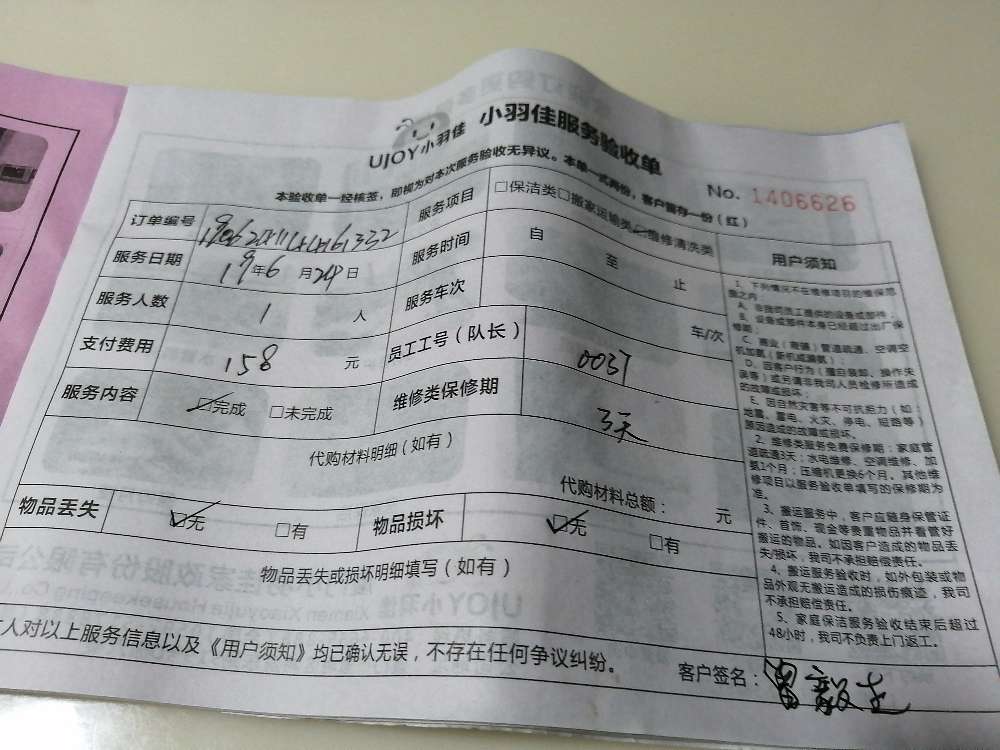 UJOY小羽佳 小羽佳服务验收单
本验收单一经核签，即视为对本次服务验收无异议。本单一式两份，客户留存一份（红）
No. 1406626
订单编号
服务项目 □保洁类□搬家运输类☑维修清洗类
服务日期 19年6月24日
服务时间 自 至 止
服务人数 1 人
服务车次 车/次
支付费用 158 元
员工工号（队长） 0037
服务内容 ☑完成 □未完成
维修类保修期 3天
代购材料明细（如有）
代购材料总额： 元
物品丢失 ☑无 □有
物品损坏 ☑无 □有
物品丢失或损坏明细填写（如有）
人对以上服务信息以及《用户须知》均已确认无误，不存在任何争议纠纷。
客户签名：
用户须知
1、下列情况不在维修项目的维保范
围之内：
A、非我司员工提供的设备或部件；
B、设备或部件本身已经超过出厂保
修期；
C、商业（商铺）管道疏通、空调空
机加氨（新机或漏氨）；
D、因客户行为（擅自装卸、操作失
误等）或另请非我司人员检修所造成
的故障或损坏；
E、因自然灾害等不可抗拒力（如：
地震、雷电、火灾、停电、短路等）
原因造成的故障或损坏。
2、维修类服务免费保修期：家庭管
道疏通3天；水电维修、空调维修、加
氨1个月；压缩机更换6个月。其他维
修项目以服务验收单填写的保修期为
准。
3、搬运服务中，客户应随身保管证
件、首饰、现金等贵重物品并看管好
搬运的物品。如因客户造成的物品丢
失/损坏，我司不承担赔偿责任。
4、搬运服务验收时，如外包装或物
品外观无搬运造成的损伤痕迹，我司
不承担赔偿责任。
5、家庭保洁服务验收结束后超过
48小时，我司不负责上门返工。